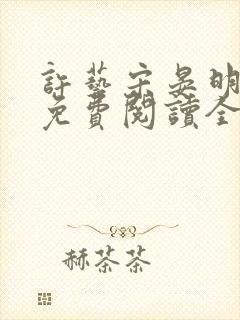 許藝宋晏明
免費閱讀全
赫茶茶